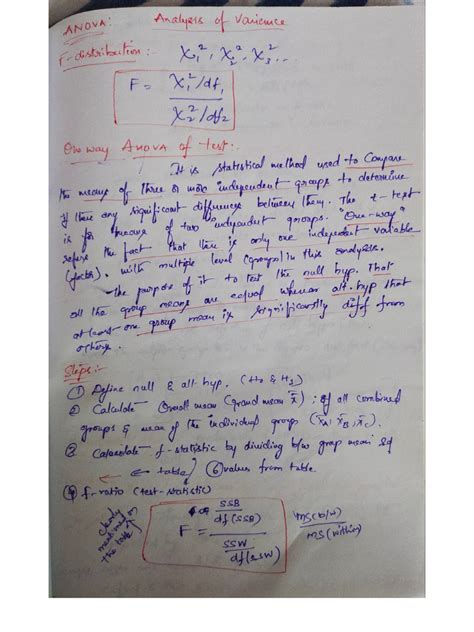 ANOVA: Analysis of Varience
F-distribution:- χ₁², χ₂², χ₃²...
F = χ₁²/df₁ / χ₂²/df₂
One way ANOVA of test:-
It is statistical method used to Compare
the means of three or more independent groups to determine
if there any significant difference between them. The t-test
is for means of two independent groups. "One-way"
refers the fact that there is only one independent variable
(factor). with multiple level (groups) in this analysis.
the purpose of it to test the null hyp. That
all the group means are equal whereas alt. hyp that
at least one group mean is significantly diff from
others.
Steps:-
① Define null & alt. hyp. (H₀ & H₁)
② Calculate Overall mean (grand mean x̄) : of all combined
groups & mean of the individual groups (x̄A, x̄B, x̄C).
③ Calculate f-statistic by dividing b/w group mean sq
← table) ⑥ values from table
④ f-ratio (test-statistic)
F = SSB/df(SSB) / SSW/df(SSW)
MS(b/w) / MS(within)
the table